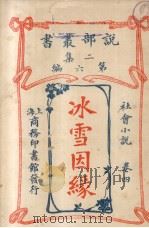 說部叢書
二集
第六編
社會小說 卷四
冰雪因緣
上海
商務印書館發行